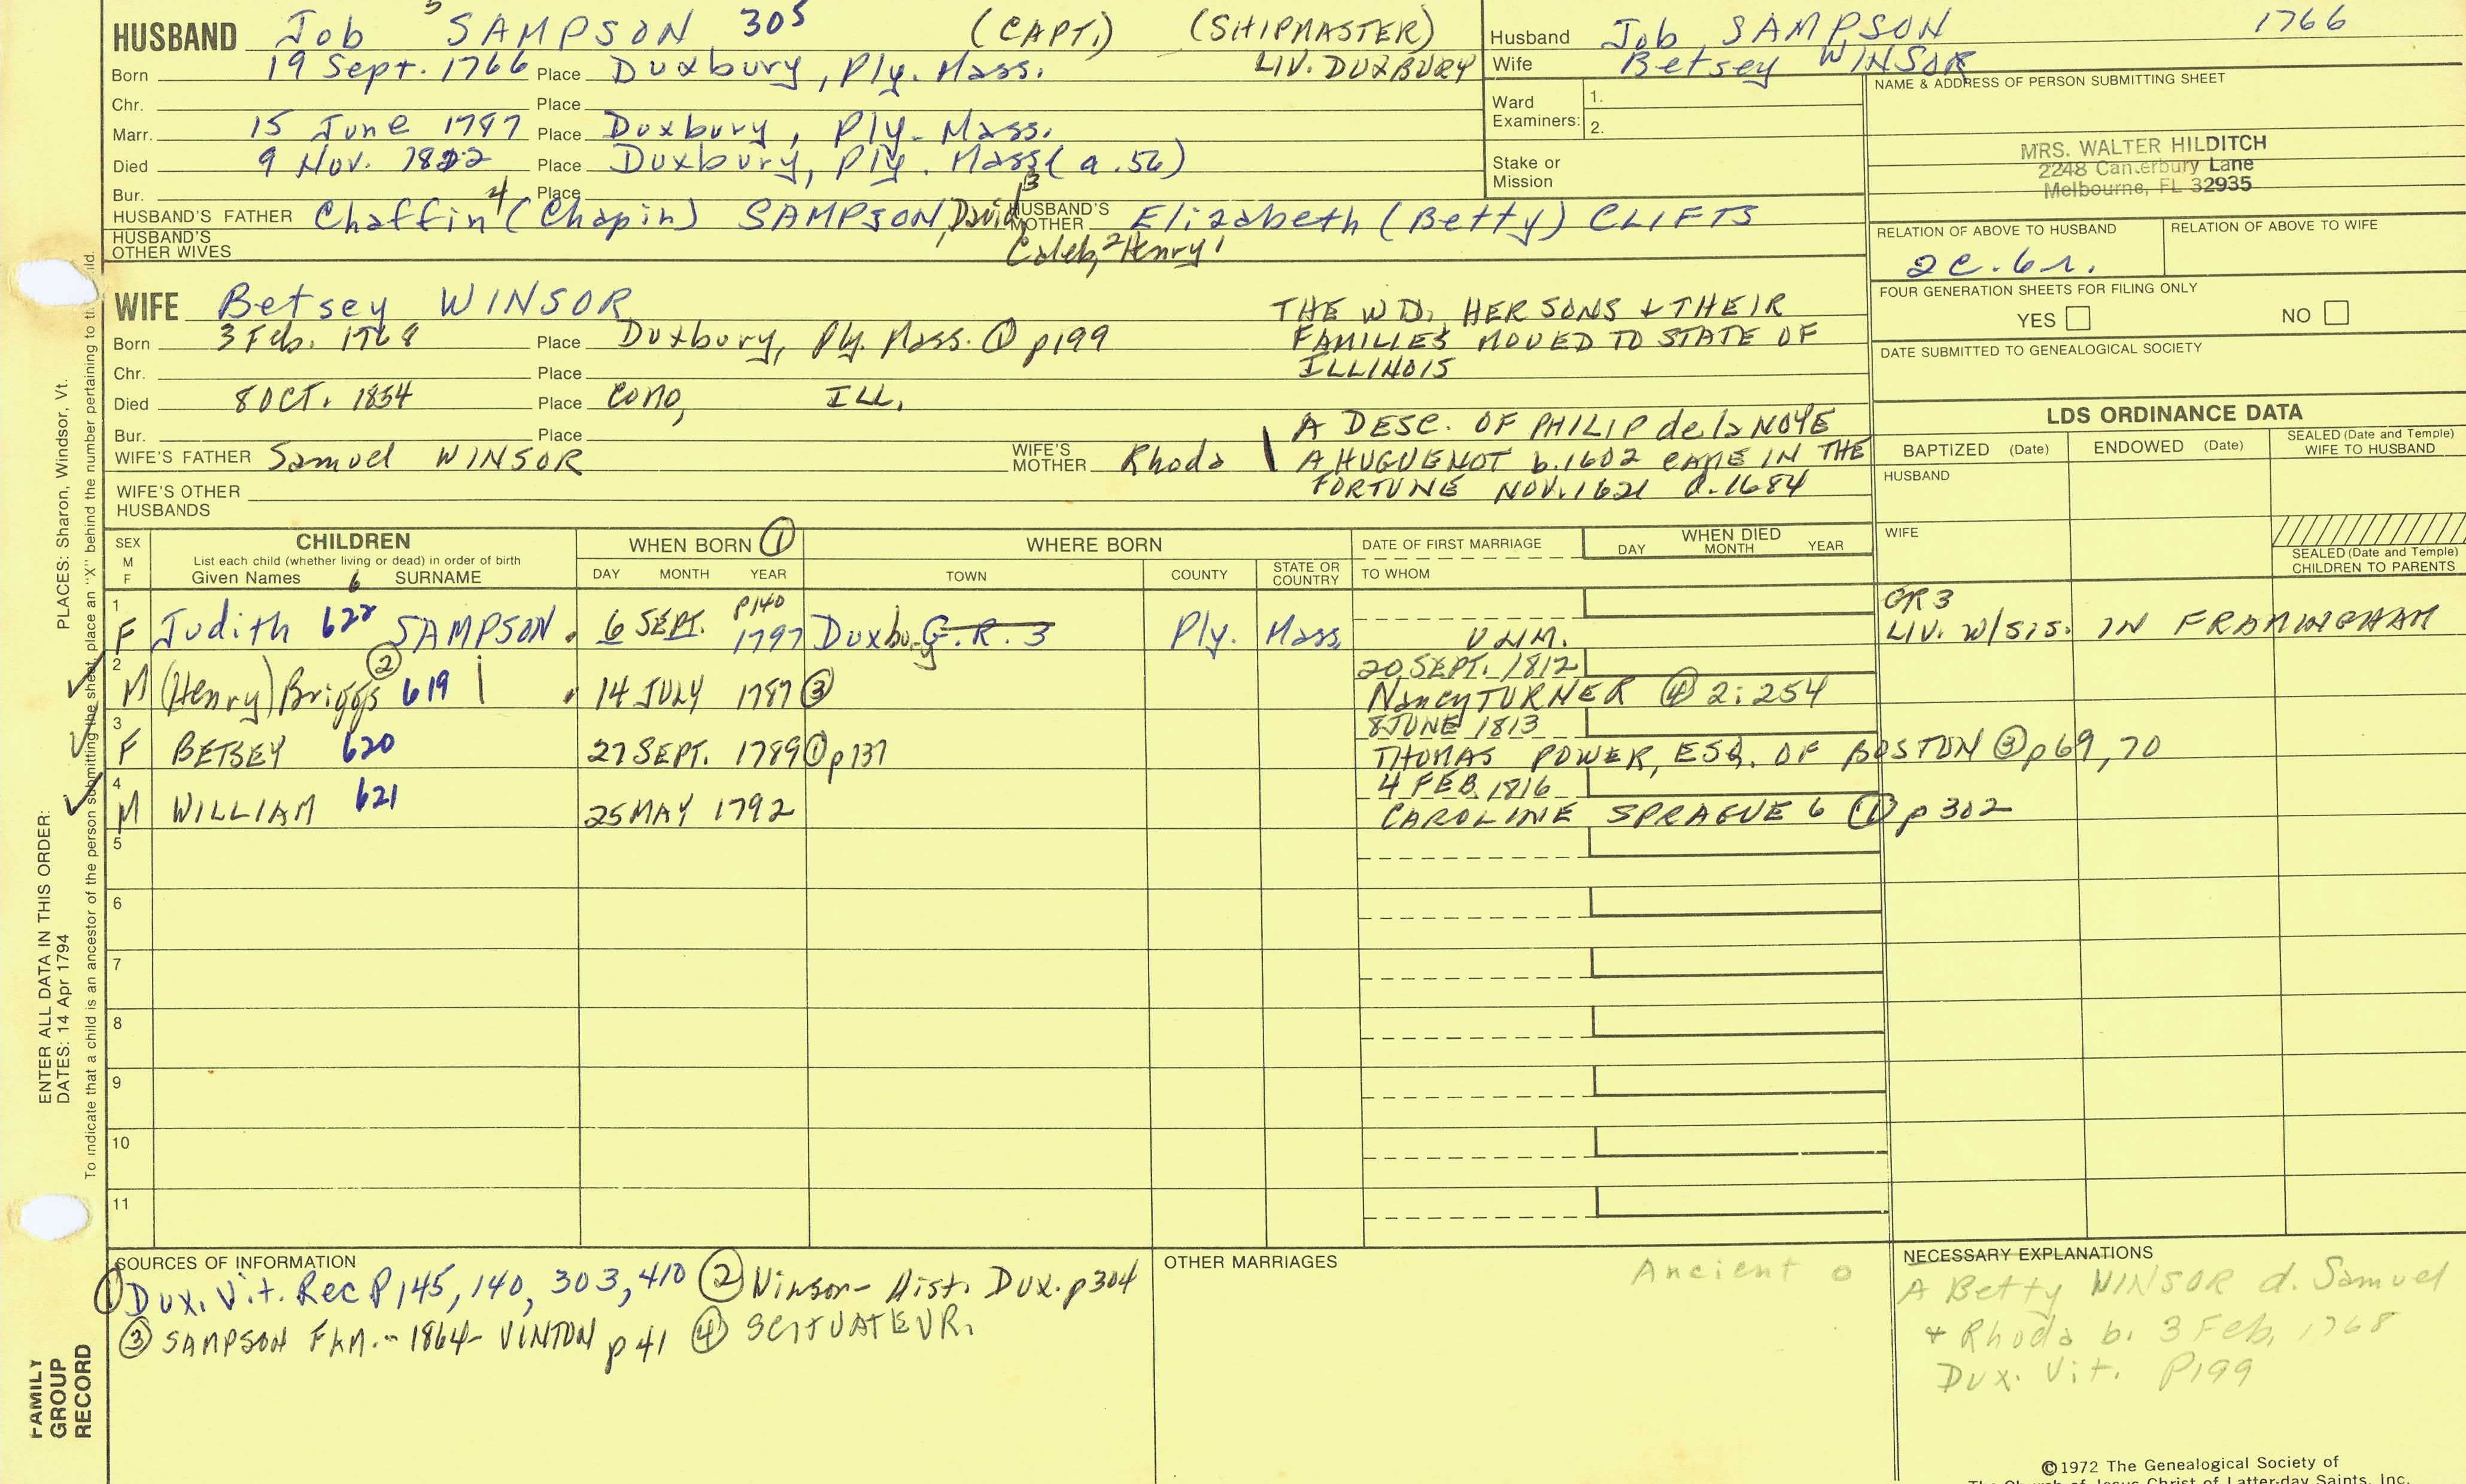 HUSBAND Job 5 SAMPSON 305 (CAPT.) (SHIPMASTER)
Born 19 Sept. 1766 Place Duxbury, Ply. Mass. LIV. DUXBURY
Chr. Place
Marr. 15 June 1787 Place Duxbury, Ply. Mass.
Died 9 Nov. 1822 Place Duxbury, Ply. Mass (a. 56)
Bur. Place
HUSBAND'S FATHER Chaffin 4 (Chapin) SAMPSON, David 3 HUSBAND'S MOTHER Elizabeth (Betty) CLIFTS
HUSBAND'S OTHER WIVES Caleb, 2 Henry 1
Husband Job SAMPSON 1766
Wife Betsey WINSOR
Ward Examiners: 1.
2.
Stake or Mission
NAME & ADDRESS OF PERSON SUBMITTING SHEET
MRS. WALTER HILDITCH
2248 Canterbury Lane
Melbourne, FL 32935
RELATION OF ABOVE TO HUSBAND RELATION OF ABOVE TO WIFE
2c. 6r.
FOUR GENERATION SHEETS FOR FILING ONLY
YES NO
DATE SUBMITTED TO GENEALOGICAL SOCIETY
WIFE Betsey WINSOR
Born 3 Feb. 1768 Place Duxbury, Ply. Mass. ① p199
Chr. Place
Died 8 OCT. 1854 Place Como, ILL.
Bur. Place
WIFE'S FATHER Samuel WINSOR WIFE'S MOTHER Rhoda
WIFE'S OTHER HUSBANDS
THE WD, HER SONS & THEIR
FAMILIES MOVED TO STATE OF
ILLINOIS
A DESC. OF PHILIP de la NOYE
A HUGUENOT b. 1602 CAME IN THE
FORTUNE NOV. 1621 d. 1684
LDS ORDINANCE DATA
BAPTIZED (Date) ENDOWED (Date) SEALED (Date and Temple) WIFE TO HUSBAND
HUSBAND
WIFE
SEALED (Date and Temple) CHILDREN TO PARENTS
SEX M F CHILDREN
List each child (whether living or dead) in order of birth
Given Names 6 SURNAME
WHEN BORN ①
DAY MONTH YEAR
WHERE BORN
TOWN COUNTY STATE OR COUNTRY
DATE OF FIRST MARRIAGE
TO WHOM
WHEN DIED
DAY MONTH YEAR
1 F Judith 622 SAMPSON 6 SEPT. p140 1797 Duxbury G.R.3 Ply. Mass. UNM. GR3
LIV. W/SIS. IN FRAMINGHAM
2 M (Henry) Briggs ② 619 14 JULY 1787 ③ 20 SEPT. 1812
Nancy TURNER ④ 2:254
3 F BETSEY 620 27 SEPT. 1789 ① p137 8 JUNE 1813
THOMAS POWER, ESQ. OF BOSTON ③ p69, 70
4 M WILLIAM 621 25 MAY 1792 4 FEB. 1816
CAROLINE SPRAGUE 6 ① p302
5
6
7
8
9
10
11
SOURCES OF INFORMATION
① Dux. Vit. Rec P145, 140, 303, 410 ② Winsor- Hist. Dux. p304
③ SAMPSON FAM. - 1864- VINTON p41 ④ SCITUATE VR.
OTHER MARRIAGES
Ancient o
NECESSARY EXPLANATIONS
A Betty WINSOR d. Samuel
+ Rhoda b. 3 Feb. 1768
Dux. Vit. P199
©1972 The Genealogical Society of
The Church of Jesus Christ of Latter-day Saints, Inc.
ENTER ALL DATA IN THIS ORDER:
DATES: 14 Apr 1794
PLACES: Sharon, Windsor, Vt.
To indicate that a child is an ancestor of the person submitting the sheet, place an "X" behind the number pertaining to that child.
FAMILY
GROUP
RECORD